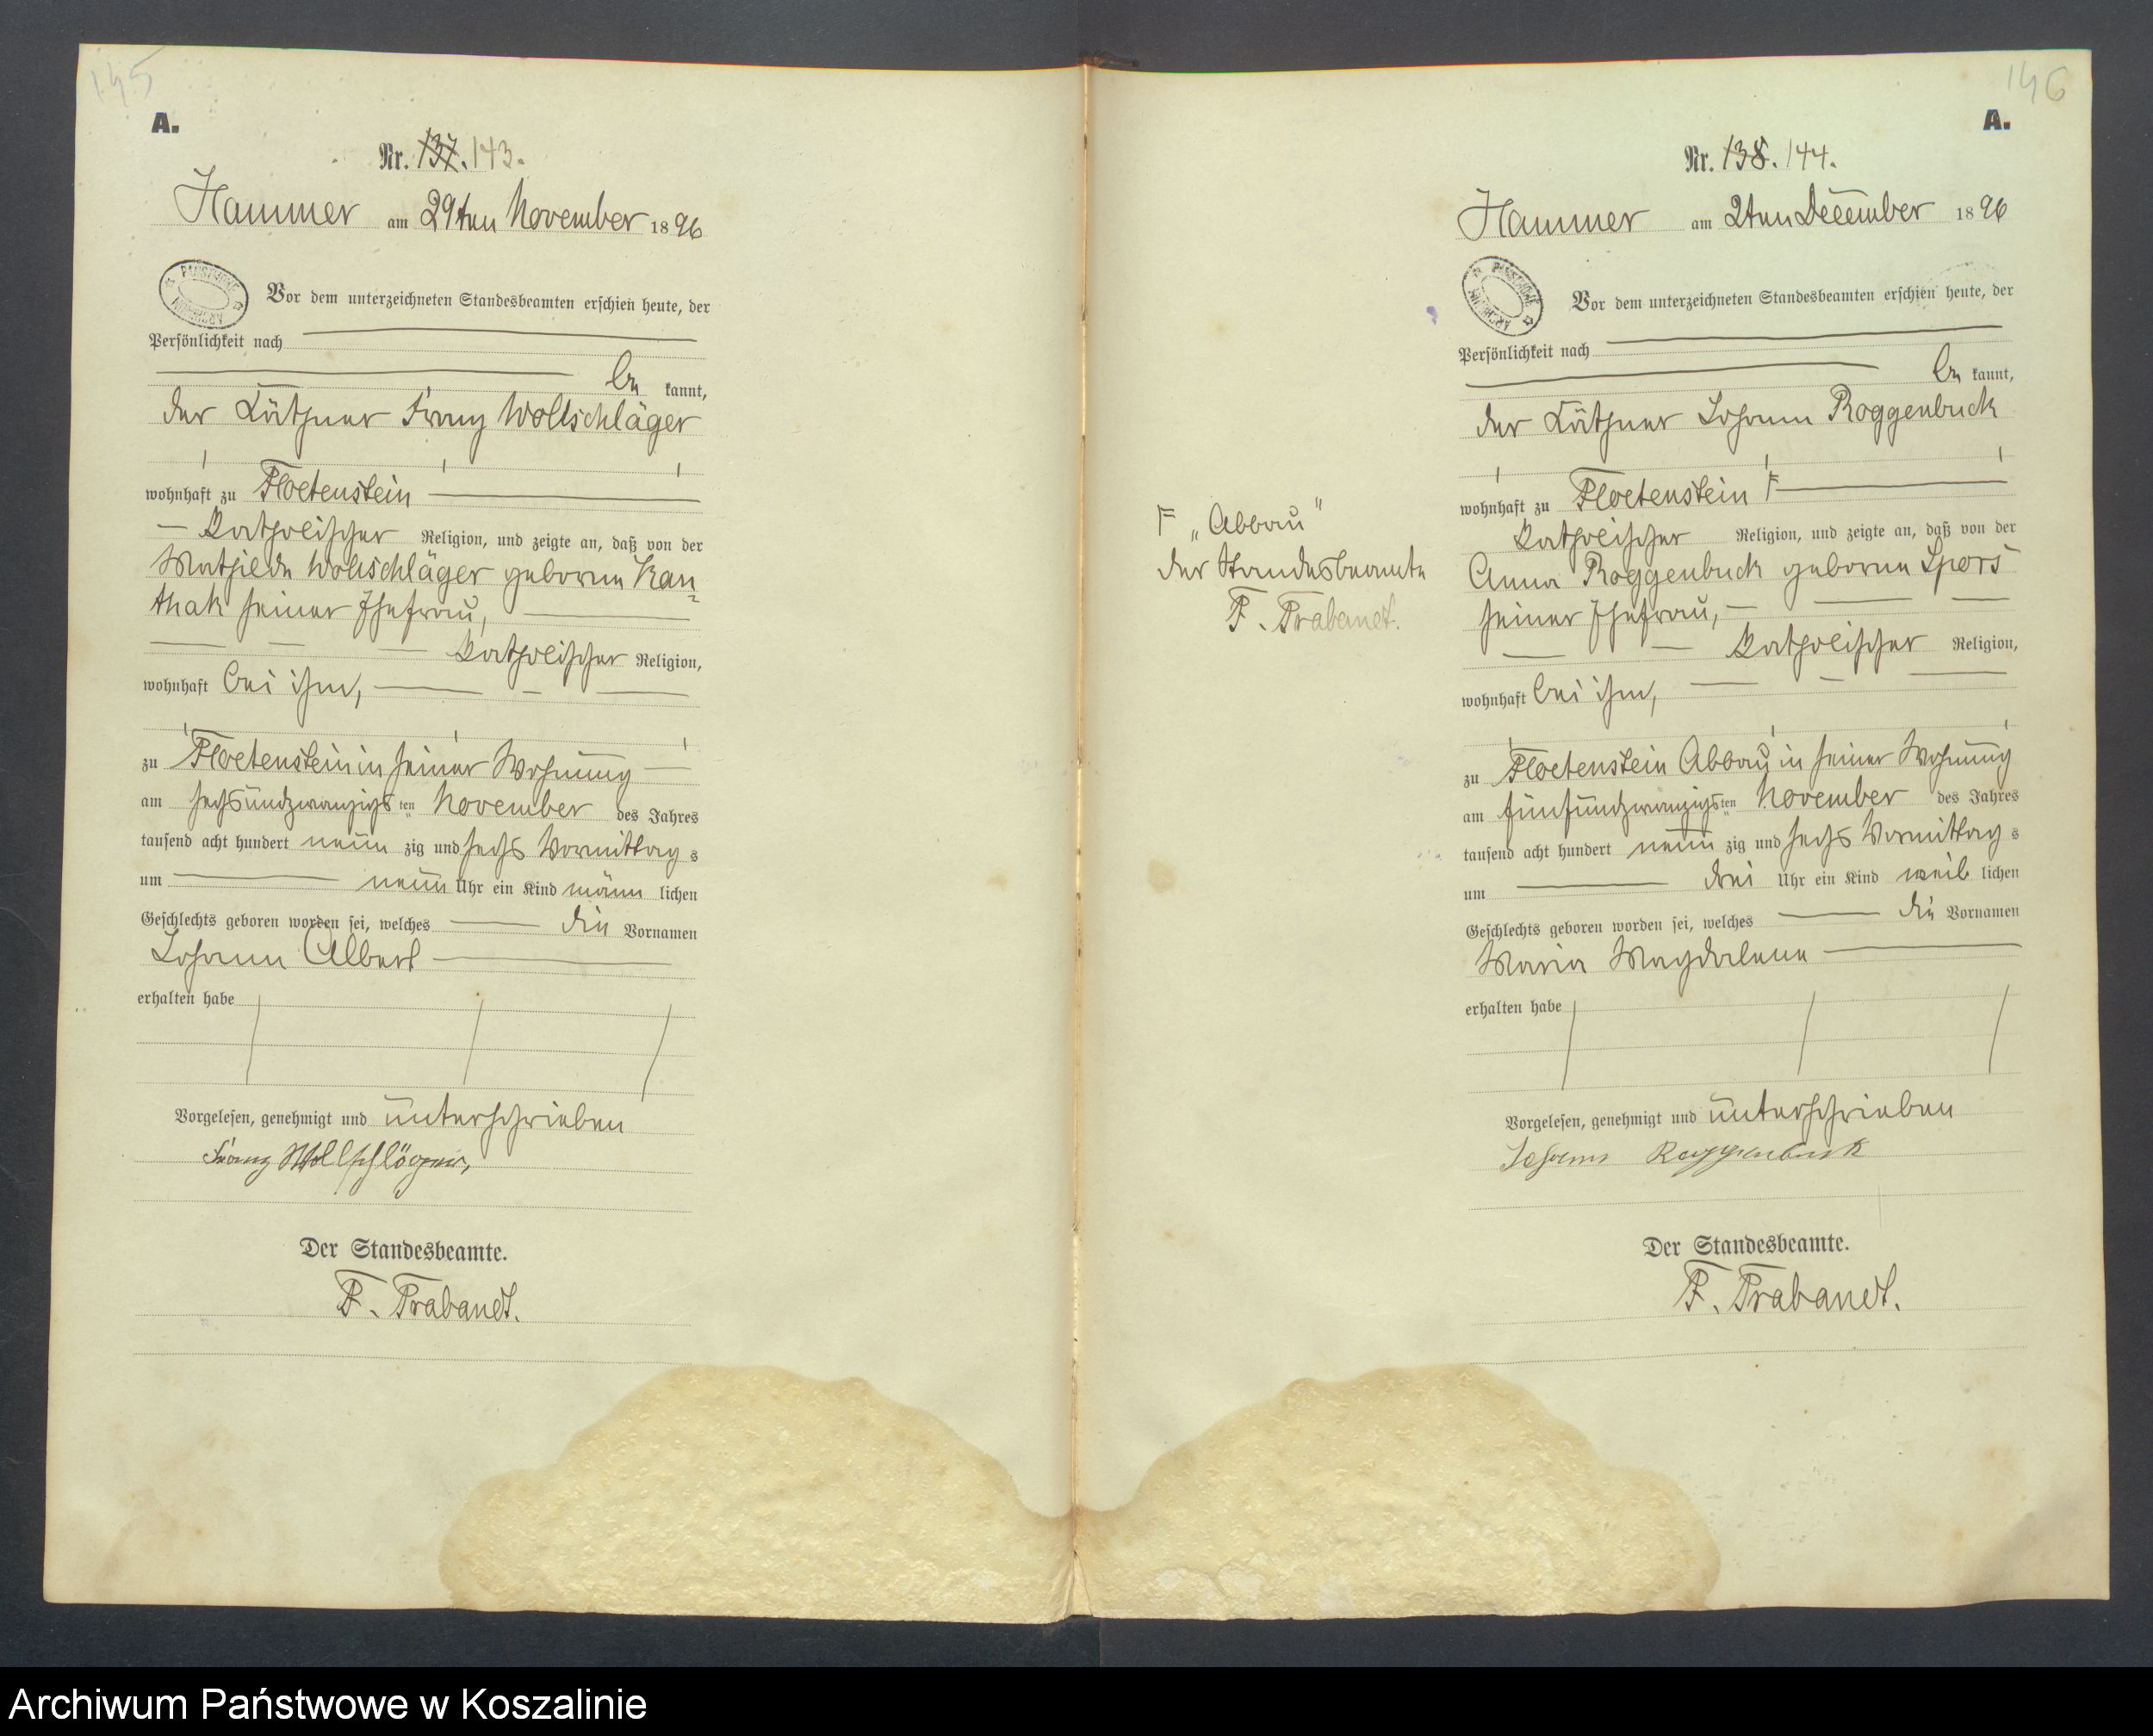 145
A.
Nr. 137. 143.
Hammer am 29ten November 1896
Vor dem unterzeichneten Standesbeamten erschien heute, der
Persönlichkeit nach
be kannt,
der Käthner Franz Wollschläger
wohnhaft zu Floetenstein
katholischer Religion, und zeigte an, daß von der
Mathilde Wollschläger geborne Kan
thak seiner Ehefrau,
katholischer Religion,
wohnhaft bei ihm,
zu Floetenstein in seiner Wohnung
am sechsundzwanzigs ten November des Jahres
tausend acht hundert neun zig und sechs Vormittag s
um neun Uhr ein Kind männ lichen
Geschlechts geboren worden sei, welches die Vornamen
Johann Albert
erhalten habe
Vorgelesen, genehmigt und unterschrieben
Franz Wollschläger,
Der Standesbeamte.
F. Trabandt.
F „Abbau"
der Standesbeamte
F. Trabandt.
146
A.
Nr. 138. 144.
Hammer am 2ten December 1896
PAŃSTWOWE ARCHIWUM
Vor dem unterzeichneten Standesbeamten erschien heute, der
Persönlichkeit nach
be kannt,
der Käthner Johann Roggenbuck
wohnhaft zu Floetenstein F
katholischer Religion, und zeigte an, daß von der
Anna Roggenbuck geborne Spors
seiner Ehefrau,
katholischer Religion,
wohnhaft bei ihm,
zu Floetenstein Abbau in seiner Wohnung
am fünfundzwanzigs ten November des Jahres
tausend acht hundert neun zig und sechs Vormittag s
um drei Uhr ein Kind weib lichen
Geschlechts geboren worden sei, welches die Vornamen
Maria Magdalena
erhalten habe
Vorgelesen, genehmigt und unterschrieben
Johann Roggenbuck
Der Standesbeamte.
F. Trabandt.
Archiwum Państwowe w Koszalinie